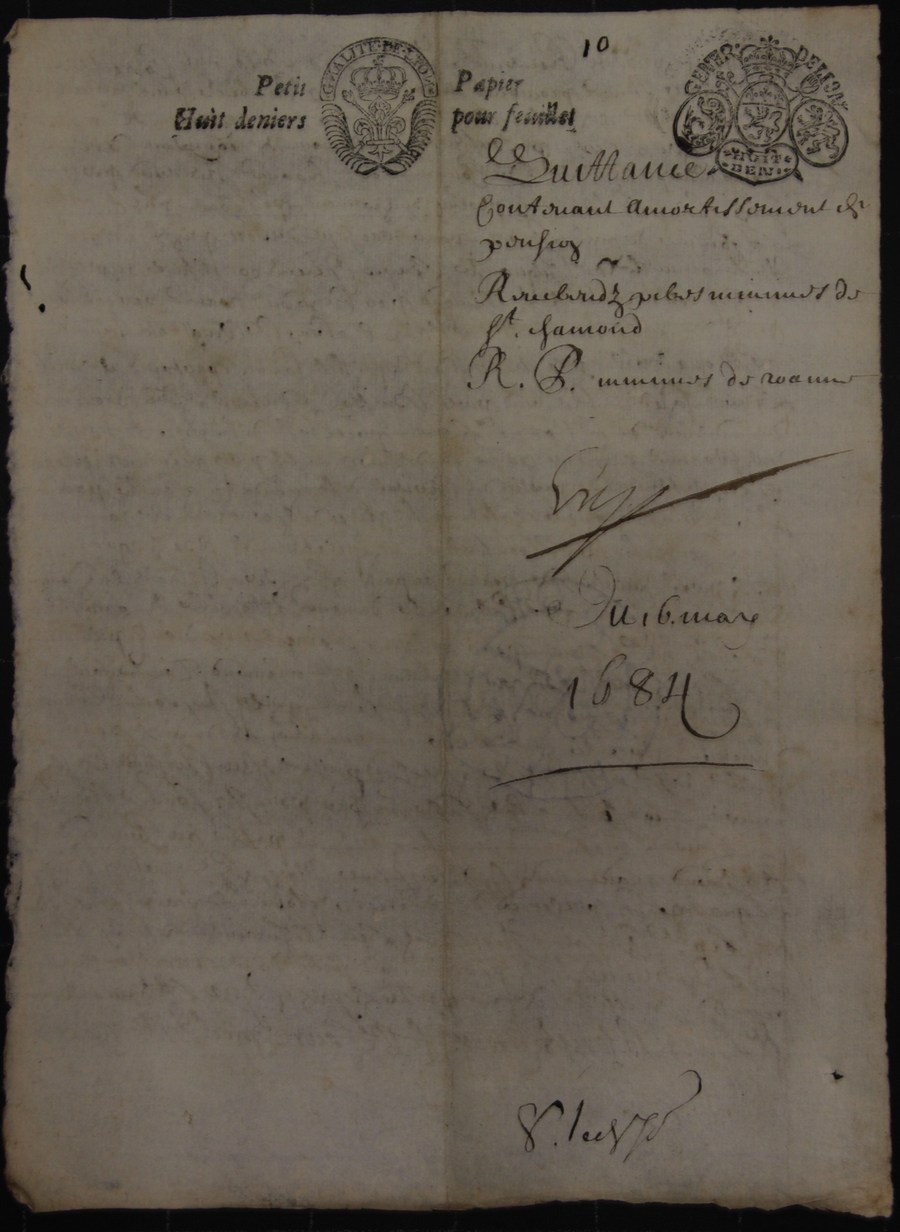 10
Petit Papier
Huit deniers pour feuillet
GENALITE DE LION
GENER DE LION
HUIT
DEN
Quittance
Contenant amortissement de
pension
Reverendz peres minimes de
St. chamond
R. P. minimes de roanne
Du 16. mars
1684